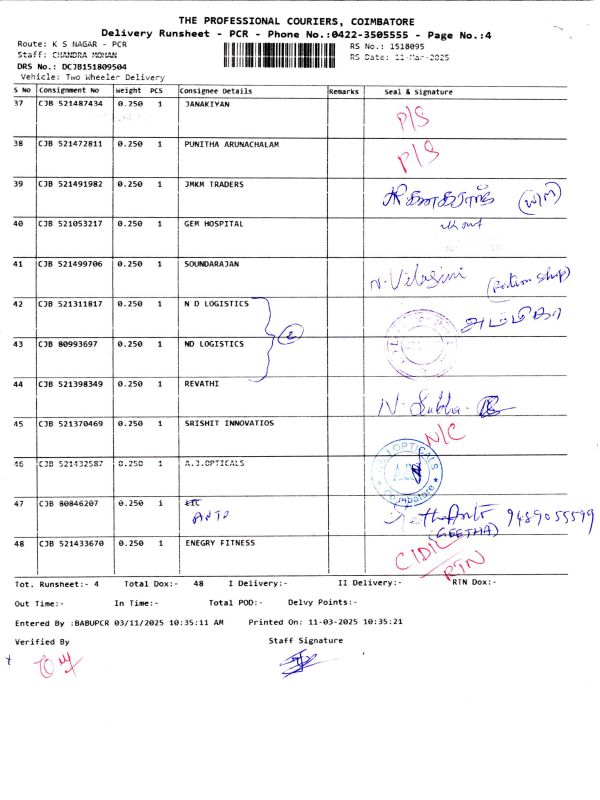 THE PROFESSIONAL COURIERS, COIMBATORE
Delivery Runsheet - PCR - Phone No.:0422-3505555 - Page No.:4
Route: K S NAGAR - PCR RS No.: 1518095
Staff: CHANDRA MOHAN RS Date: 11-Mar-2025
DRS No.: DCJB151809504
Vehicle: Two Wheeler Delivery
S No Consignment No Weight PCS Consignee Details Remarks Seal & Signature
37 CJB 521487434 0.250 1 JANAKIYAN P/S
38 CJB 521472811 0.250 1 PUNITHA ARUNACHALAM P/S
39 CJB 521491982 0.250 1 JMKM TRADERS
40 CJB 521053217 0.250 1 GEM HOSPITAL
41 CJB 521499706 0.250 1 SOUNDARAJAN N. Vilasini (Ration shop)
42 CJB 521311817 0.250 1 N D LOGISTICS
43 CJB 80993697 0.250 1 ND LOGISTICS
44 CJB 521398349 0.250 1 REVATHI N. Subha
45 CJB 521370469 0.250 1 SRISHIT INNOVATIOS N/C
46 CJB 521432587 0.250 1 A.J.OPTICALS OPTICALS Coimbatore
47 CJB 80846207 0.250 1 ETC ANTO 9489055599
(GEETHA)
48 CJB 521433670 0.250 1 ENEGRY FITNESS RTN
Tot. Runsheet:- 4 Total Dox:- 48 I Delivery:- II Delivery:- RTN Dox:-
Out Time:- In Time:- Total POD:- Delvy Points:-
Entered By :BABUPCR 03/11/2025 10:35:11 AM Printed On: 11-03-2025 10:35:21
Verified By Staff Signature